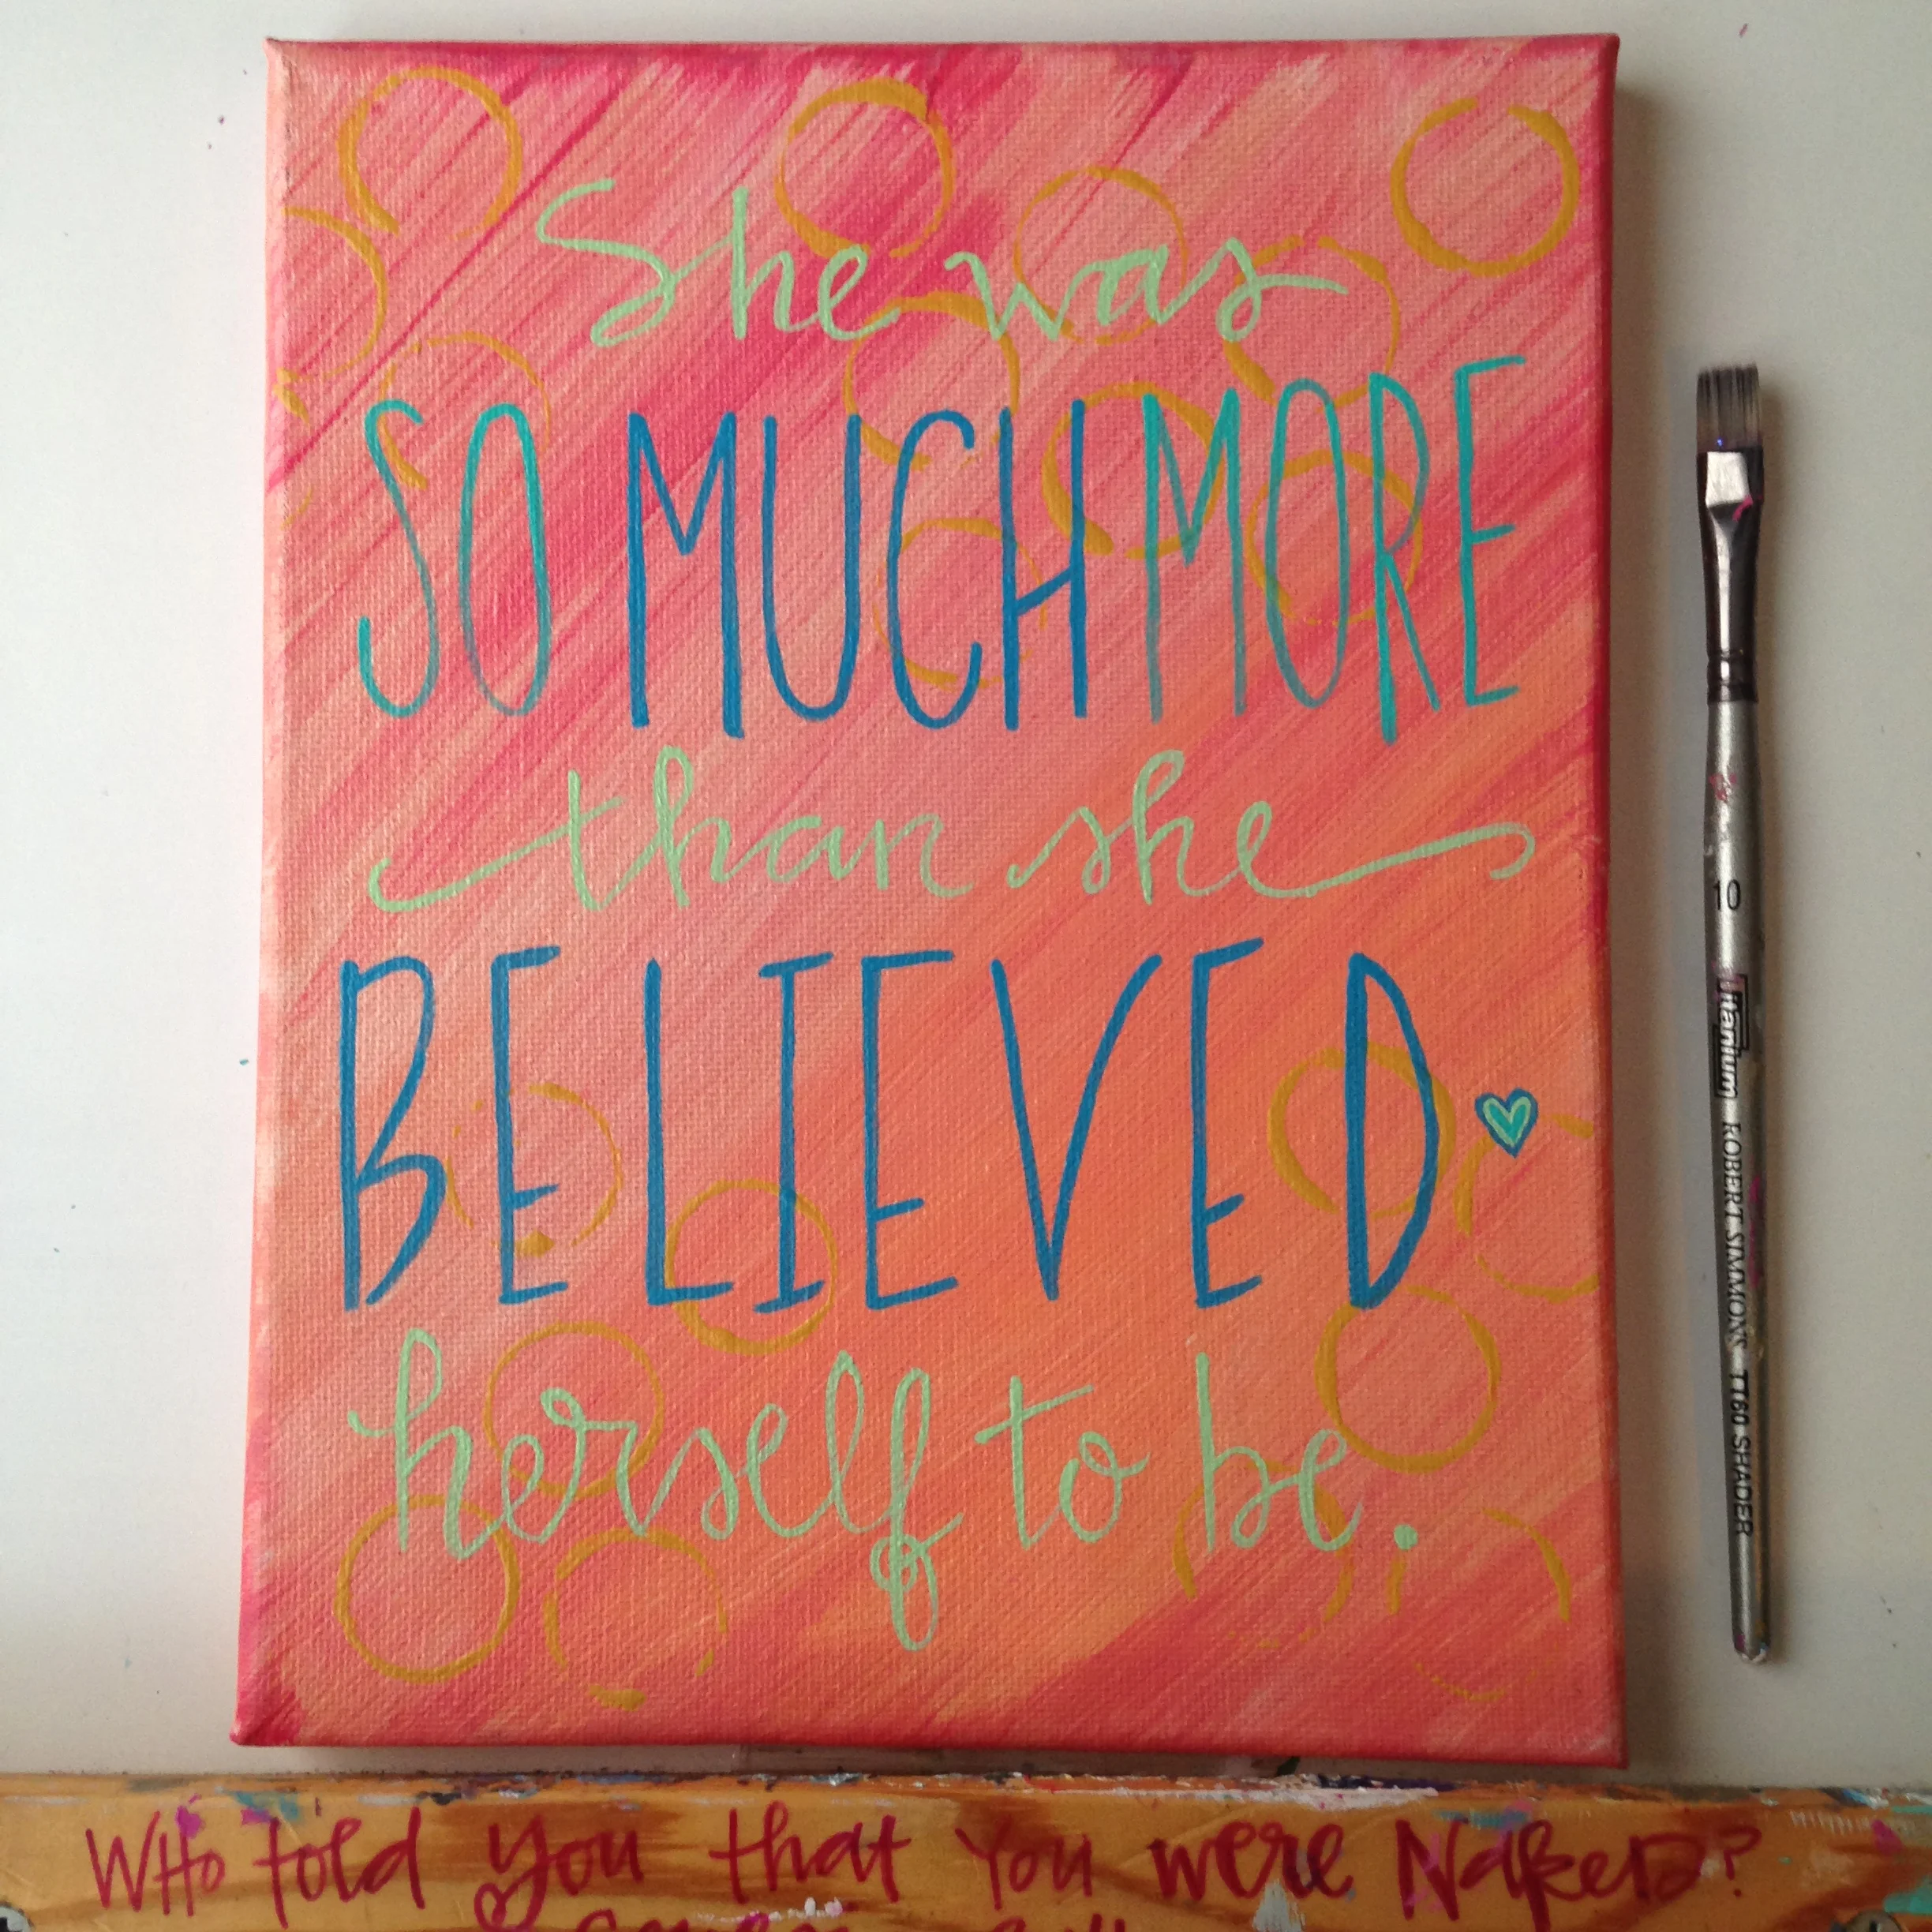 She was
SO MUCH MORE
than she
BELIEVED
herself to be.
10
titanium ROBERT SIMMONS TT60 SHADER
WHo told you that You were NaKeD?